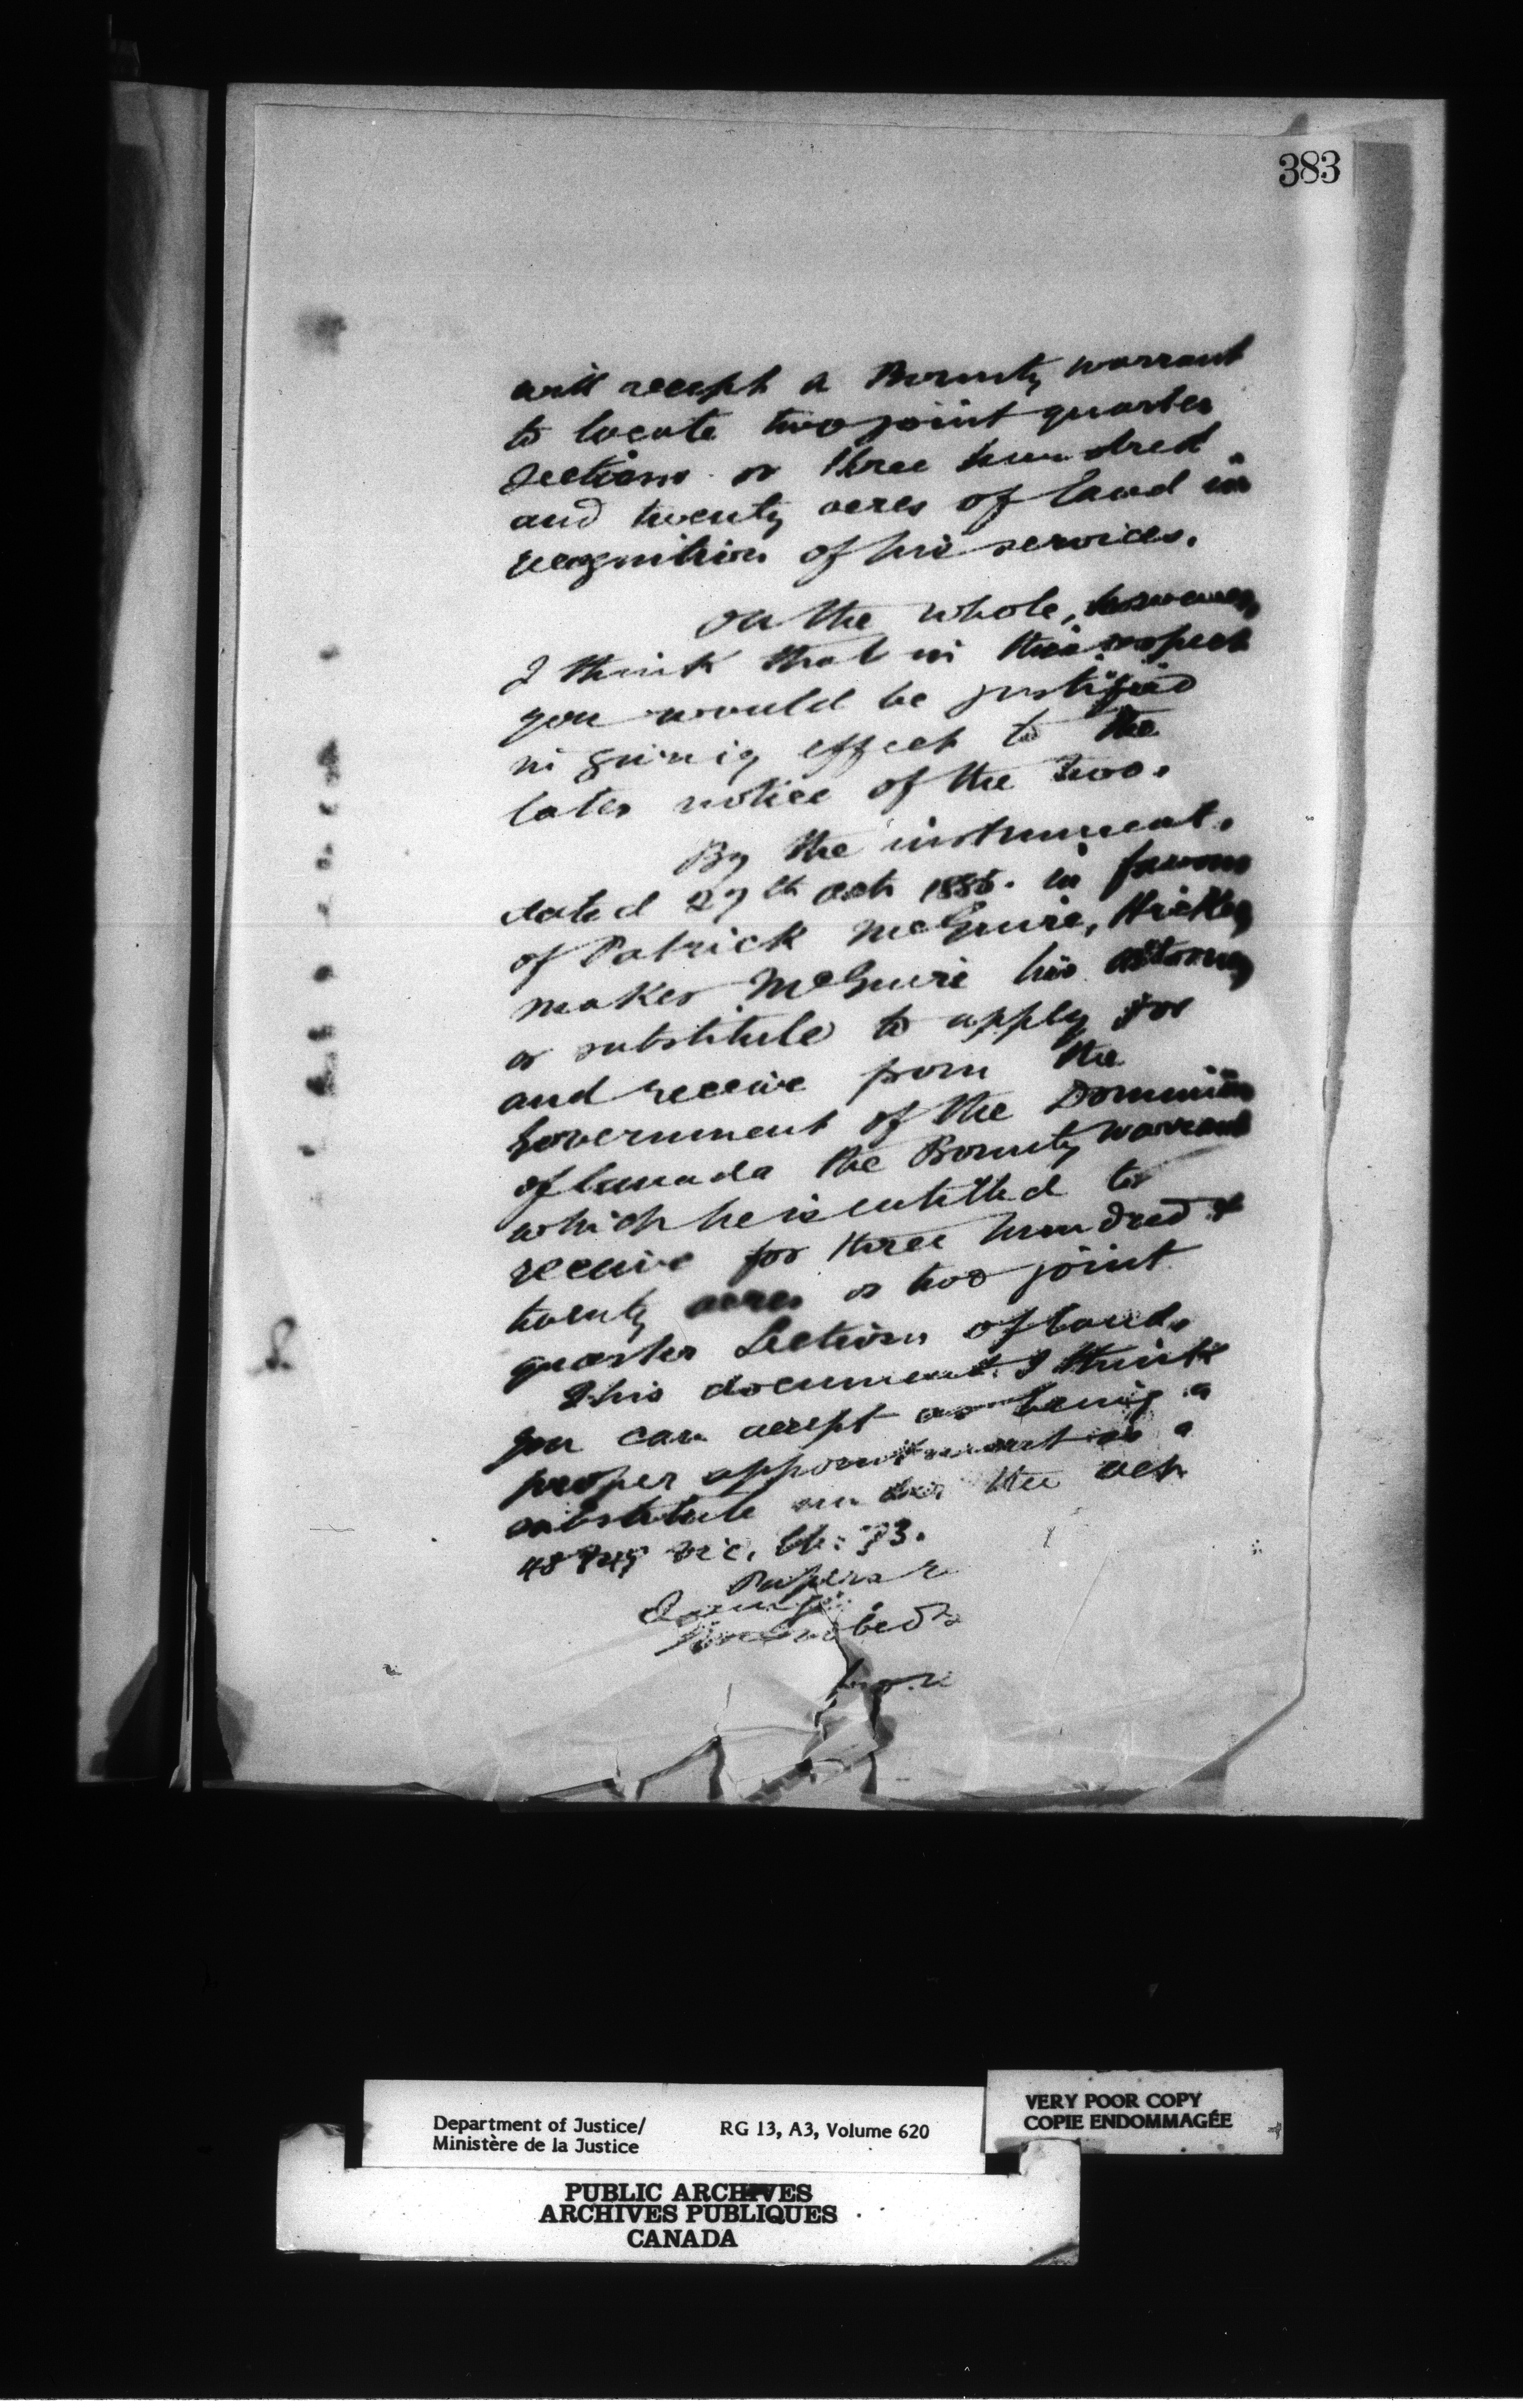 383
will accept a Bounty warrant
to locate two joint quarter
sections or three hundred
and twenty acres of land in
recognition of his services.
On the whole, however,
I think that in this respect
you would be justified
in giving effect to the
later notice of the two.
By the instrument,
dated 27th Oct 1885. in favour
of Patrick McGuire, Hickey
makes McGuire his attorney
or substitute to apply for
and receive from the
Government of the Dominion
of Canada the Bounty warrant
which he is entitled to
receive for three hundred &
twenty acres or two joint
quarter Sections of land.
This document I think
you can accept as being a
proper appointment as a
substitute under the act
48 & 49 Vic. Ch: 73.
Papers
Department of Justice/
Ministère de la Justice
RG 13, A3, Volume 620
VERY POOR COPY
COPIE ENDOMMAGÉE
PUBLIC ARCHIVES
ARCHIVES PUBLIQUES
CANADA